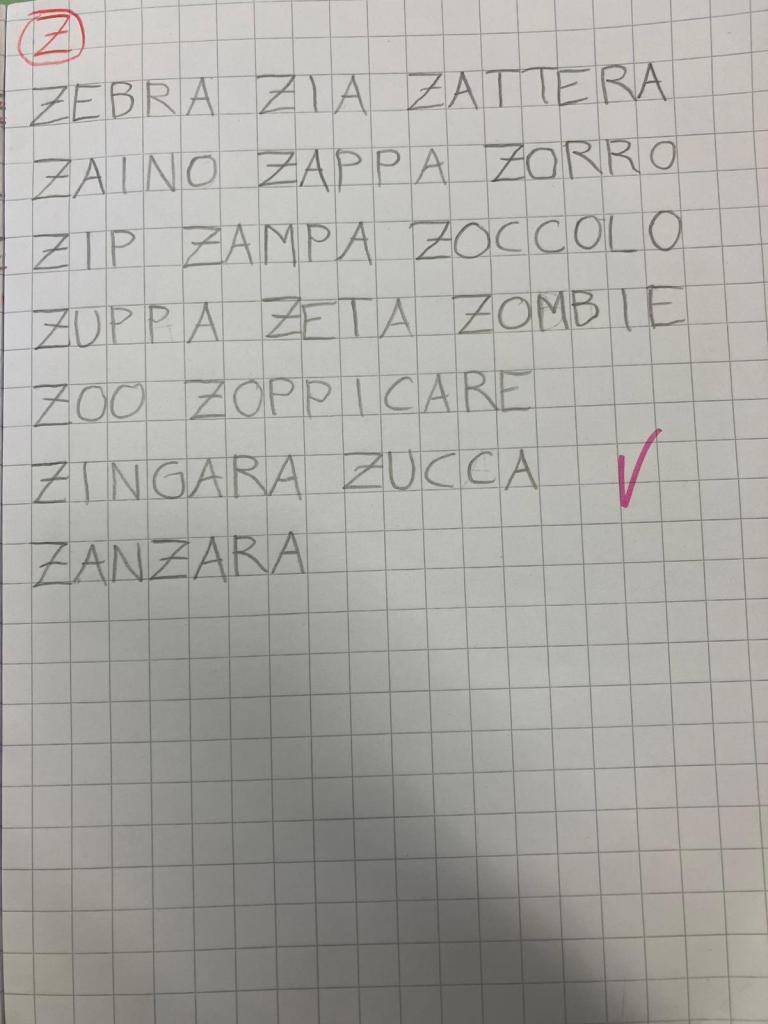 Z
ZEBRA ZIA ZATTERA
ZAINO ZAPPA ZORRO
ZIP ZAMPA ZOCCOLO
ZUPPA ZETA ZOMBIE
ZOO ZOPPICARE
ZINGARA ZUCCA
ZANZARA